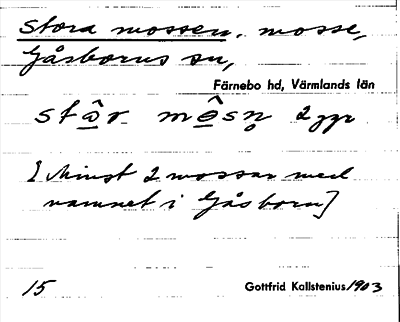 Stora mossen, mosse,
Gåsborns sn,
Färnebo hd, Värmlands län
stɑ̂r mô̱sn̥ 2 ggr
[Minst 2 mossar med
namnet i Gåsborn]
15 Gottfrid Kallstenius 1903